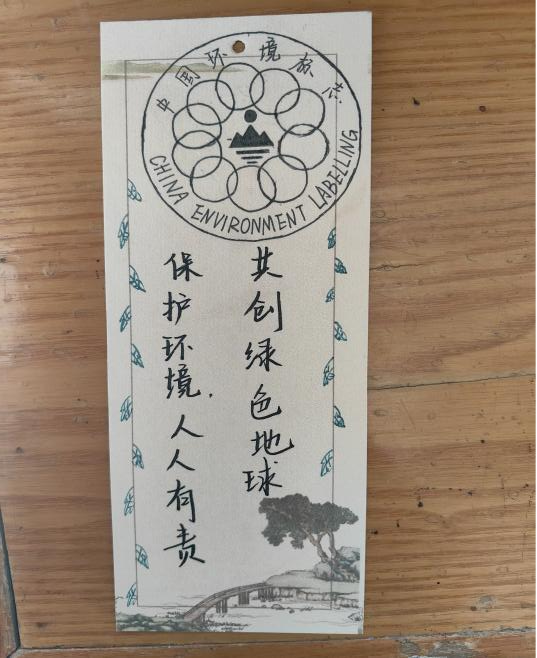 中国环境标志
CHINA ENVIRONMENT LABELLING
保护环境，人人有责
共创绿色地球